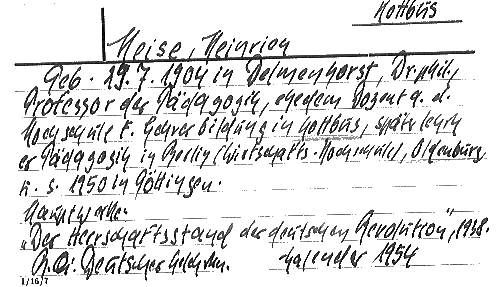 Kottbus
Heise, Heinrich
Geb. 19.7.1904 in Delmenhorst, Dr. phil.,
Professor der Pädagogik, ehedem Dozent a. d.
Hochschule f. Lehrerbildung in Kottbus, später lehrt
er Pädagogik in Berlin (Wirtschafts-Hochschule), Oldenburg
u. s. 1950 in Göttingen.
Hauptwerke:
"Der Herrschaftsstand der deutschen Revolution", 1938.
Deutscher kalender 1954
1/16/7